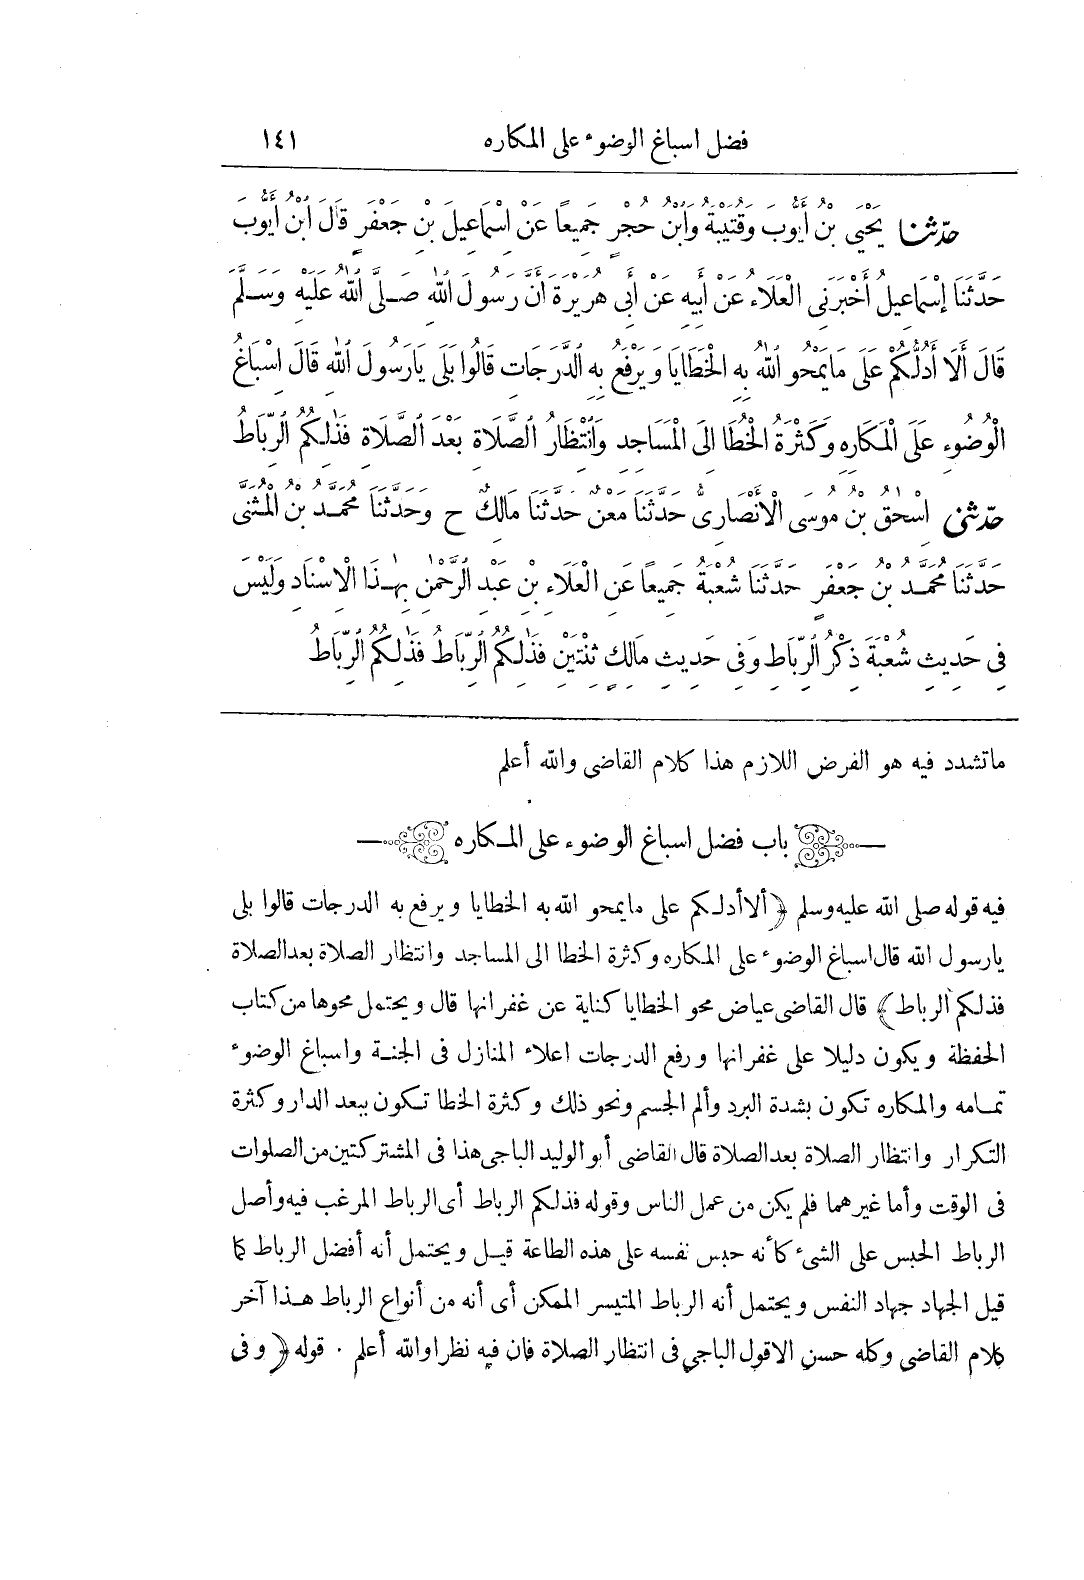 فضل اسباغ الوضوء على المكاره ١٤١
حَدَّثَنَا يَحْيَى بْنُ أَيُّوبَ وَقُتَيْبَةُ وَابْنُ حُجْرٍ جَمِيعاً عَنْ إِسْمَاعِيلَ بْنِ جَعْفَرٍ قَالَ ابْنُ أَيُّوبَ
حَدَّثَنَا إِسْمَاعِيلُ أَخْبَرَنِى الْعَلَاءُ عَنْ أَبِيهِ عَنْ أَبِى هُرَيْرَةَ أَنَّ رَسُولَ اللهِ صَلَّى اللهُ عَلَيْهِ وَسَلَّمَ
قَالَ أَلَا أَدُلُّكُمْ عَلَى مَا يَمْحُو اللهُ بِهِ الْخَطَايَا وَيَرْفَعُ بِهِ الدَّرَجَاتِ قَالُوا بَلَى يَارَسُولَ اللهِ قَالَ إِسْبَاغُ
الْوُضُوءِ عَلَى الْمَكَارِهِ وَكَثْرَةُ الْخُطَا إِلَى الْمَسَاجِدِ وَانْتِظَارُ الصَّلَاةِ بَعْدَ الصَّلَاةِ فَذَلِكُمُ الرِّبَاطُ
حَدَّثَنِى إِسْحٰقُ بْنُ مُوسَى الْأَنْصَارِىُّ حَدَّثَنَا مَعْنٌ حَدَّثَنَا مَالِكٌ ح وَحَدَّثَنَا مُحَمَّدُ بْنُ الْمُثَنَّى
حَدَّثَنَا مُحَمَّدُ بْنُ جَعْفَرٍ حَدَّثَنَا شُعْبَةُ جَمِيعاً عَنِ الْعَلَاءِ بْنِ عَبْدِ الرَّحْمٰنِ بِهٰذَا الْإِسْنَادِ وَلَيْسَ
فِى حَدِيثِ شُعْبَةَ ذِكْرُ الرِّبَاطِ وَفِى حَدِيثِ مَالِكٍ ثِنْتَيْنِ فَذٰلِكُمُ الرِّبَاطُ فَذٰلِكُمُ الرِّبَاطُ
ماتشدد فيه هو الفرض اللازم هذا كلام القاضى والله أعلم
باب فضل اسباغ الوضوء على المكاره
فيه قوله صلى الله عليه وسلم ﴿ألا أدلكم على ما يمحو الله به الخطايا ويرفع به الدرجات قالوا بلى
يارسول الله قال اسباغ الوضوء على المكاره وكثرة الخطا الى المساجد وانتظار الصلاة بعد الصلاة
فذلكم الرباط﴾ قال القاضى عياض محو الخطايا كناية عن غفرانها قال ويحتمل محوها من كتاب
الحفظة ويكون دليلا على غفرانها ورفع الدرجات اعلاء المنازل فى الجنة واسباغ الوضوء
تمامه والمكاره تكون بشدة البرد وألم الجسم ونحو ذلك وكثرة الخطا تكون ببعد الدار وكثرة
التكرار وانتظار الصلاة بعد الصلاة قال القاضى أبو الوليد الباجى هذا فى المشتركتين من الصلوات
فى الوقت وأما غيرهما فلم يكن من عمل الناس وقوله فذلكم الرباط أى الرباط المرغب فيه وأصل
الرباط الحبس على الشىء كأنه حبس نفسه على هذه الطاعة قيل ويحتمل أنه أفضل الرباط كما
قيل الجهاد جهاد النفس ويحتمل أنه الرباط المتيسر الممكن أى أنه من أنواع الرباط هذا آخر
كلام القاضى وكله حسن الا قول الباجى فى انتظار الصلاة فان فيه نظرا والله أعلم . قوله ﴿وفى